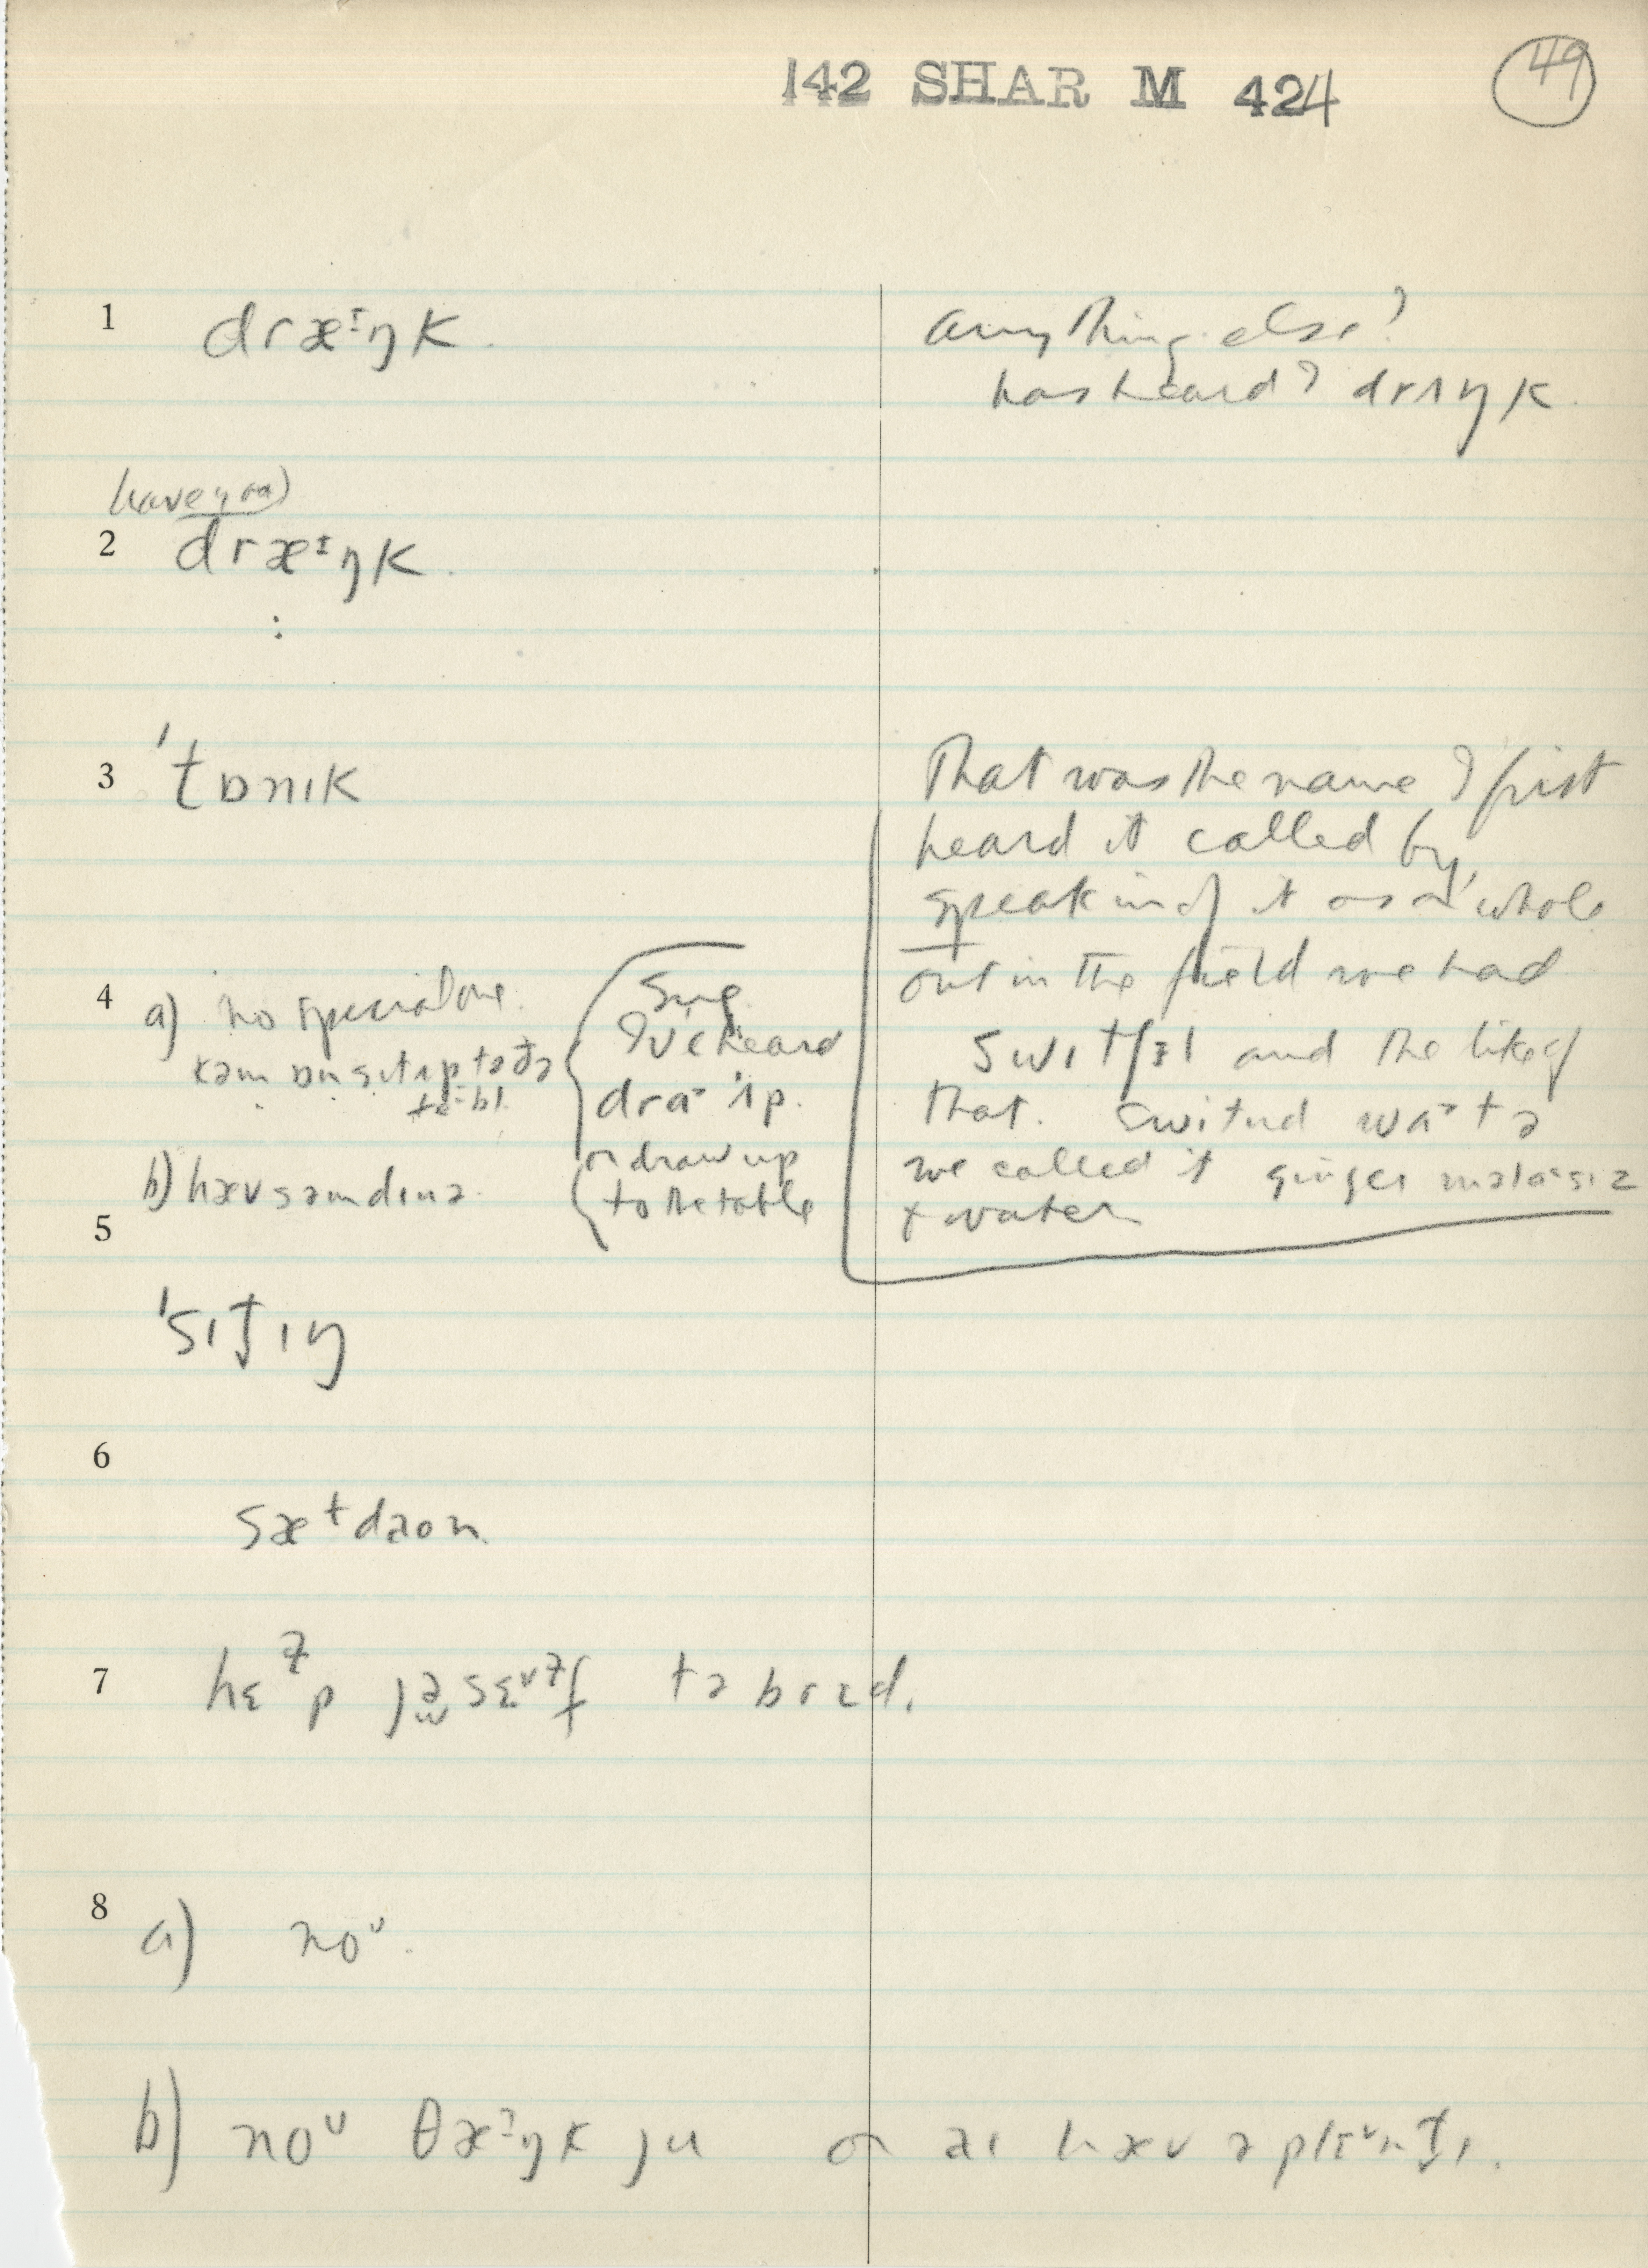 142 SHAR M 424
49
1 dræᶦŋk.
anything else?
has heard? drʌŋk.
(have you)
2 dræᶦŋk.
3 ˈt̬ɒnɪk
That was the name I first
heard it called by,
speaking of it as a whole
out in the field we had
switʃɜl and the like of
that. switud wa˃tə
we called it ginger məlɑ˃sɪz
+ water
4 a) no special one.
kəm ɒn sɪt ʌp tə ðə
te˃bl.
Sug.
I've heard
dra˃ ˈʌp.
or draw up
to the table
b) hæv səm dɪnə.
5
ˈsɪt̬ɪŋ
6
sæt daon
7 hɛp jə sɛᵛf tə brɛd.
8 a) noᵁ.
b) noᵁ θæᶦŋk ju or aɪ hæv ə plɛᵛnt̬ɪ.